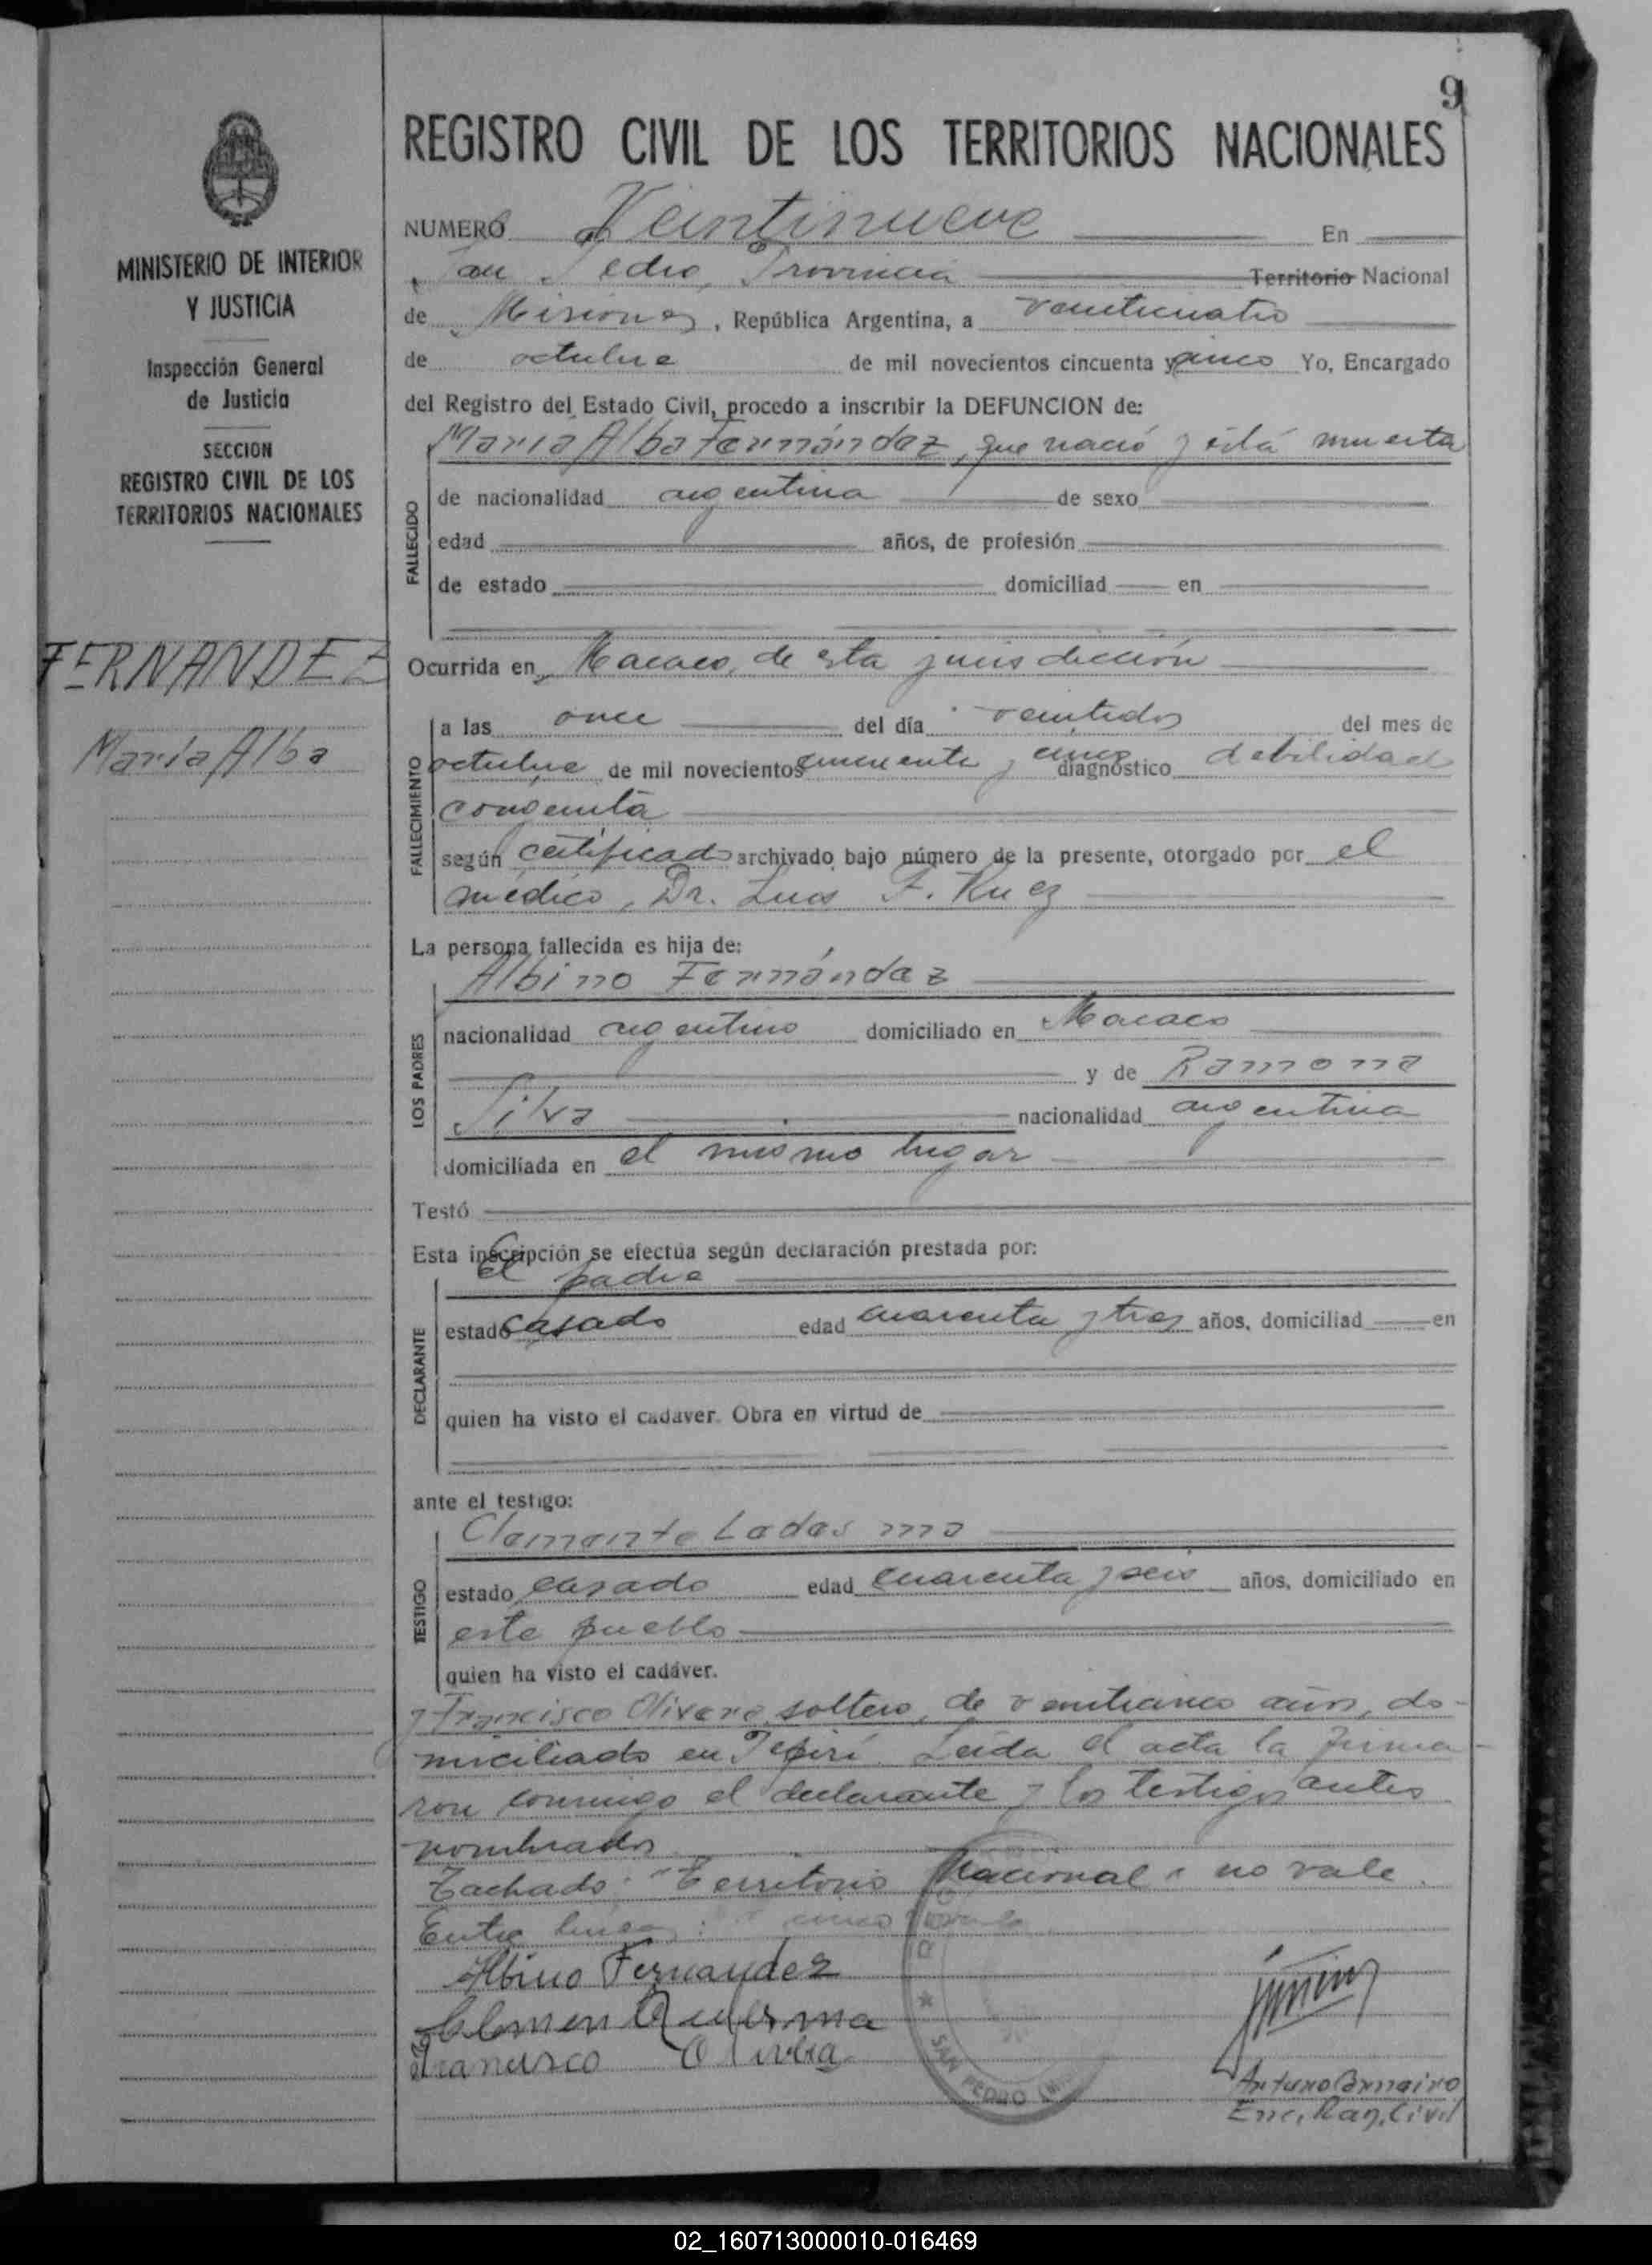 9
REGISTRO CIVIL DE LOS TERRITORIOS NACIONALES
MINISTERIO DE INTERIOR
Y JUSTICIA
Inspección General
de Justicia
SECCION
REGISTRO CIVIL DE LOS
TERRITORIOS NACIONALES
FERNANDEZ
María Alba
NUMERO Veintinueve En
San Pedro, Provincia Territorio Nacional
de Misiones, República Argentina, a veinticuatro
de octubre de mil novecientos cincuenta y cinco Yo, Encargado
del Registro del Estado Civil, procedo a inscribir la DEFUNCION de:
María Alba Fernández, que nació y está muerta
FALLECIDO
de nacionalidad argentina de sexo
edad años, de profesión
de estado domiciliad en
Ocurrida en Macaco, de esta jurisdicción
FALLECIMIENTO
a las once del día veintidos del mes de
octubre de mil novecientos cincuenta y cinco diagnóstico debilidad
congenita
según certificado archivado bajo número de la presente, otorgado por el
médico, Dr. Luis F. Ruez
La persona fallecida es hija de:
LOS PADRES
Albino Fernández
nacionalidad argentino domiciliado en Macaco
y de Ramona
Silva nacionalidad argentina
domiciliada en el mismo lugar
Testó
Esta inscripción se efectúa según declaración prestada por:
DECLARANTE
el padre
estado casado edad cuarenta y tres años, domiciliad en
quien ha visto el cadaver. Obra en virtud de
ante el testigo:
TESTIGO
Clemente Ledesma
estado casado edad cuarenta y seis años, domiciliado en
este pueblo
quien ha visto el cadáver.
y Francisco Olivera, soltero, de veinticinco años, do-
miciliado en Pepirí. Leida el acta la firma-
ron conmigo el declarante y los testigos antes
nombrados
Tachado: "Territorio Nacional" no vale.
Entre lineas: cinco vale
Albino Fernandez
Francisco Olivera
SAN PEDRO
Arturo
Enc. Reg. Civil
02_160713000010-016469